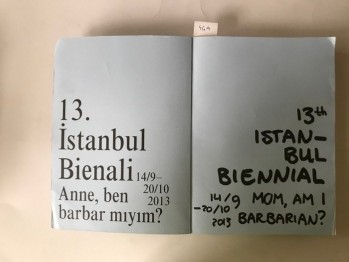 13.
İstanbul
Bienali 14/9–
20/10
2013
Anne, ben
barbar mıyım?
13th
ISTAN–
BUL
BIENNIAL
14/9
–20/10
2013
MOM, AM I
BARBARIAN?